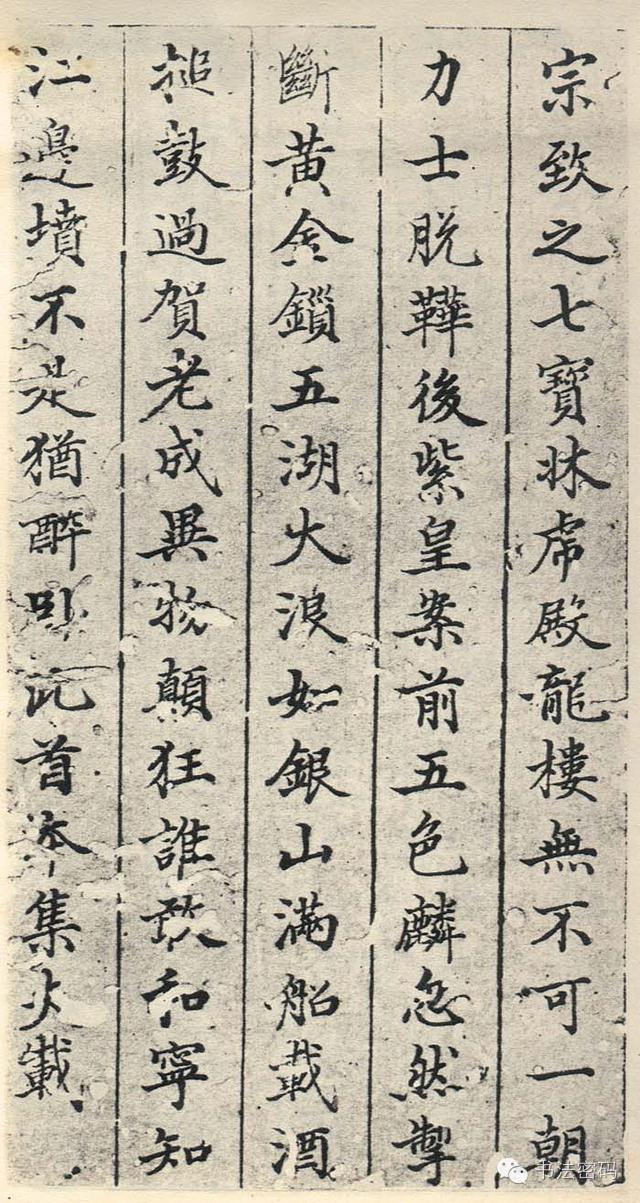 宗致之七寶牀虎殿龍樓無不可一朝
力士脫鞾後紫皇案前五色麟忽然掣
斷黃金鎖五湖大浪如銀山滿船載酒
搥鼓過賀老成異物顛狂誰敢和寧知
江邊墳不是猶醉卧此首本集失載
书法密码